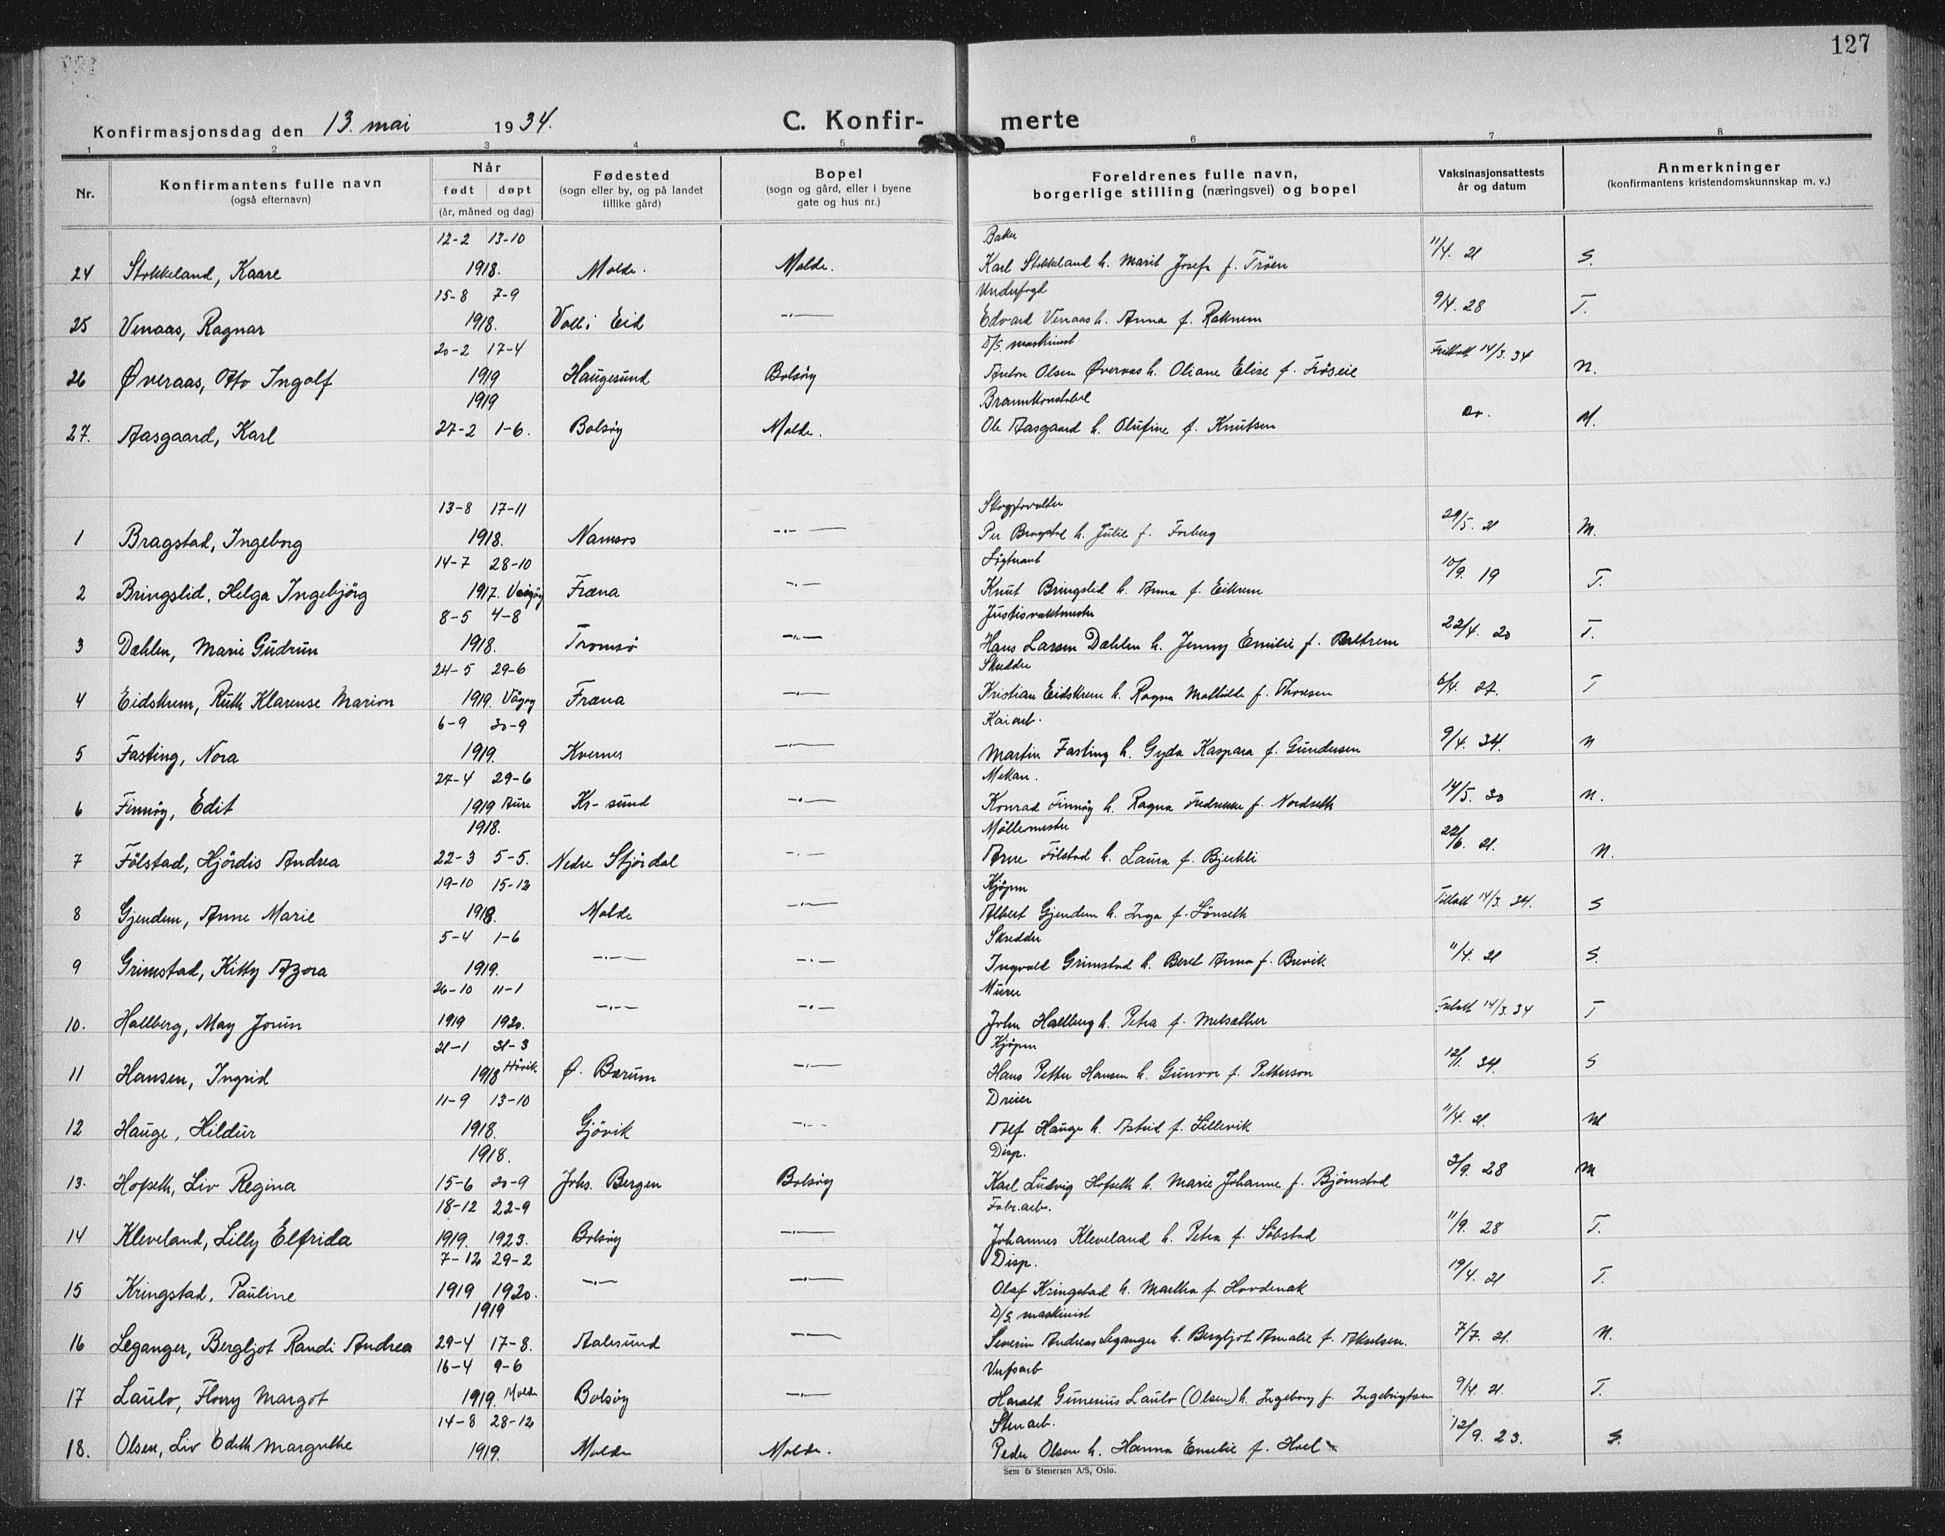 127
Konfirmasjonsdag den 13. mai 1934. C. Konfir- merte
1 2 3 4 5 6 7 8
Nr. Konfirmantens fulle navn (også efternavn) Når født døpt (år, måned og dag) Fødested (sogn eller by, og på landet tillike gård) Bopel (sogn og gård, eller i byene gate og hus nr.) Foreldrenes fulle navn, borgerlige stilling (næringsvei) og bopel Vaksinasjonsattests år og datum Anmerkninger (konfirmantens kristendomskunnskap m. v.)
12-2 13-10 Baker
24 Stokkeland, Kaare 1918. Molde. Molde. Karl Stokkeland h. Marit Josefa f. Tröen 11/4. 21 S.
15-8 7-9 Underfogd
25 Venaas, Ragnar 1918. Voll i Eid —·— Edvard Venaas h. Anna f. Raknem 9/4. 28 T.
20-2 17-4 D/S. maskinist
26 Øveraas, Otto Ingolf 1919 Haugesund Bolsöy Anton Olsen Øveraas h. Oliane Elise f. Fröseie 14/3. 34 N.
1919 Brannkonstabel
27. Aasgaard, Karl 27-2 1-6. Bolsöy Molde. Ole Aasgaard h. Olufine f. Knutsen M.
13-8 17-11 Skogforvalter
1 Bragstad, Ingeborg 1918. Namsos —·— Per Bragstad h. Julie f. Forberg 29/5. 21 M.
14-7 28-10 Löytnant
2 Bringslid, Helga Ingebjörg 1917. Vågöy Fræna —·— Knut Bringslid h. Anna f. Eikrem 10/9. 19 T.
8-5 4-8 Justisvaktmester
3 Dæhlen, Marie Gudrun 1918. Tromsö —·— Hans Larsen Dæhlen h. Jenny Emilie f. 22/4. 20 T.
24-5 29-6 Skredder
4 Eidskrem, Ruth Klarense Marion 1919. Vågöy Fræna —·— Kristian Eidskrem h. Ragna Mathilde f. Thoresen 6/4. 27. T
6-9 20-9 Kaiarb.
5 Fasting, Nora 1919. Kvernes —·— Martin Fasting h. Gyda Kaspara f. Gundersen 9/4. 34. N
27-4 29-6 Mekan.
6 Finnöy, Edit 1919 Aure Kr-sund —·— Konrad Finnöy h. Ragna Fredrikke f. Nordseth 14/5. 30 N.
1918. Möllemester
7 Fölstad, Hjördis Andrea 22-3 5-5. Nedre Stjördal —·— Arne Fölstad h. Laura f. Bjerkli 22/6. 21. N.
19-10 15-12 Kjöpm
8 Gjendem, Anne Marie 1918. Molde —·— Albert Gjendem h. Inga f. Lönseth 14/3. 34. S
5-4 1-6 Skredder
9 Grimstad, Kitty Azora 1919. —·— —·— Ingvald Grimstad h. Beret Anna f. Brevik 11/4. 21 S.
26-10 11-1 Murer
10. Hallberg, May Jorun 1919 1920. —·— —·— John Hallberg h. Petra f. Melsæther 14/3. 34 T
21-1 31-3 Kjöpm
11 Hansen, Ingrid 1918 Hövik Ø. Bærum —·— Hans Petter Hansen h. Gunvor f. Petterson 12/1. 34. S
11-9 13-10 Dreier
12 Hauge, Hildur 1918. Gjövik —·— Alf Hauge h. Astrid f. Lillevik 11/4. 21. M
1918. Disp.
13. Hofseth, Liv Regina 15-6 20-9 Johs. Bergen Bolsöy Karl Ludvig Hofseth h. Marie Johanne f. Björnstad 3/9. 28 M
18-12 22-9 Fabr.arb.
14 Kleveland, Lilly Elfrida 1919. 1923. Bolsöy —·— Johannes Kleveland h. Petra f. Söbstad 11/9. 28 T.
7-12 29-2 Disp.
15 Kringstad, Pauline 1919 1920. —·— —·— Olaf Kringstad h. Martha f. Hovdenak 19/4. 21 T.
1919 D/S maskinist
16 Leganger, Bergljot Randi Andrea 29-4 17-8. Aalesund —·— Severin Andreas Leganger h. Bergljot Amalie f. Akselsen. 7/7. 21. N.
16-4 9-6 Verfsarb
17 Laulo, Florry Margot 1919. Molde Bolsöy —·— Harald Gunerius Laulo (Olsen) h. Ingeborg f. Ingebrigtsen 9/4. 21. T.
14-8 28-12 Stenarb.
18. Olsen, Liv Edith Margrethe 1919. Molde Molde. Peder Olsen h. Hanna Emelie f. Hoel 12/9. 23. S.
Sem & Stenersen A/S, Oslo.